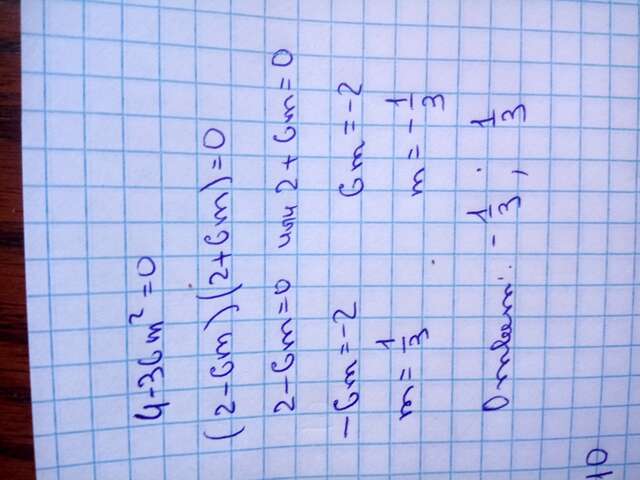 4-36m²=0
(2-6m)(2+6m)=0
2-6m=0 или 2+6m=0
-6m=-2 6m=-2
m=1/3 m=-1/3
Ответ: -1/3; 1/3
10